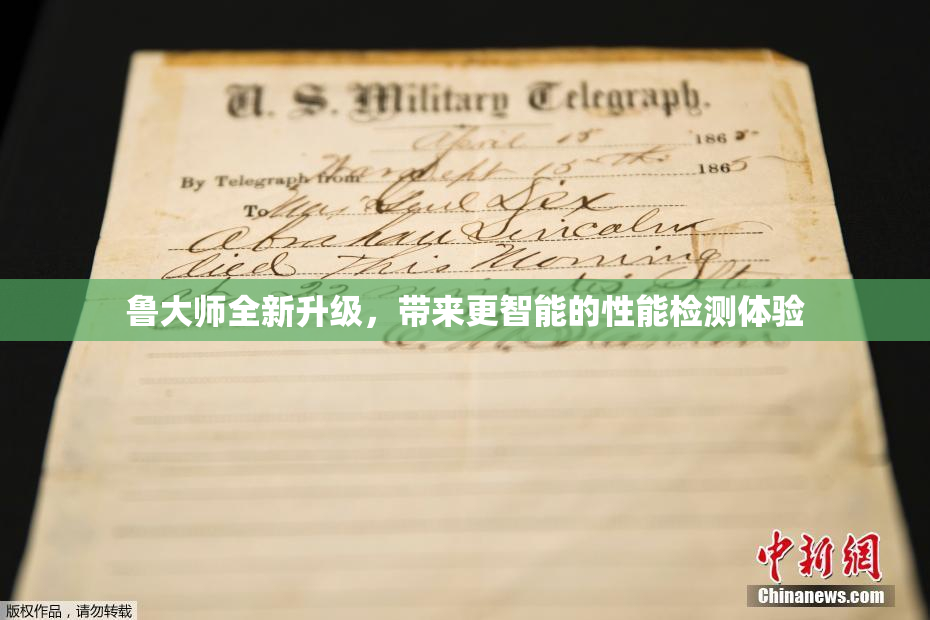 U. S. Military Telegraph.
April 15 1865
By Telegraph from War Dept 15th 1865
To Maj Genl Dix
Abraham Lincoln
died This Morning
at 22 minutes after
鲁大师全新升级，带来更智能的性能检测体验
E. M. Stanton
中新网
Chinanews.com
版权作品，请勿转载